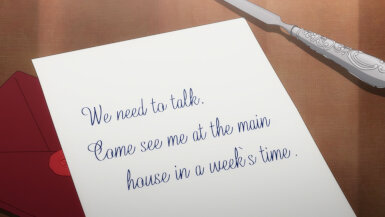 We need to talk.
Come see me at the main
house in a week's time.